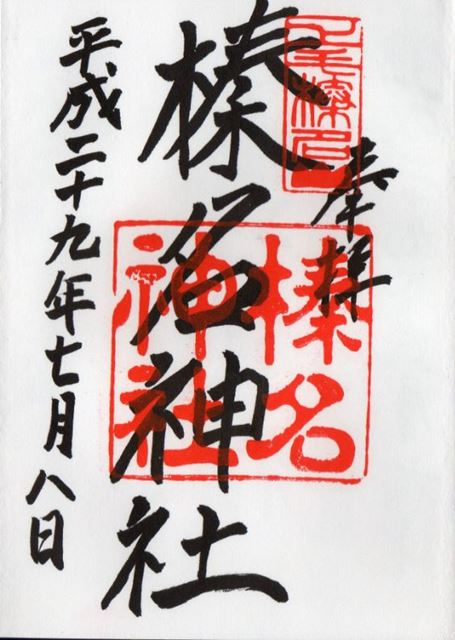 奉拝
榛名神社
平成二十九年七月八日
榛名
神社